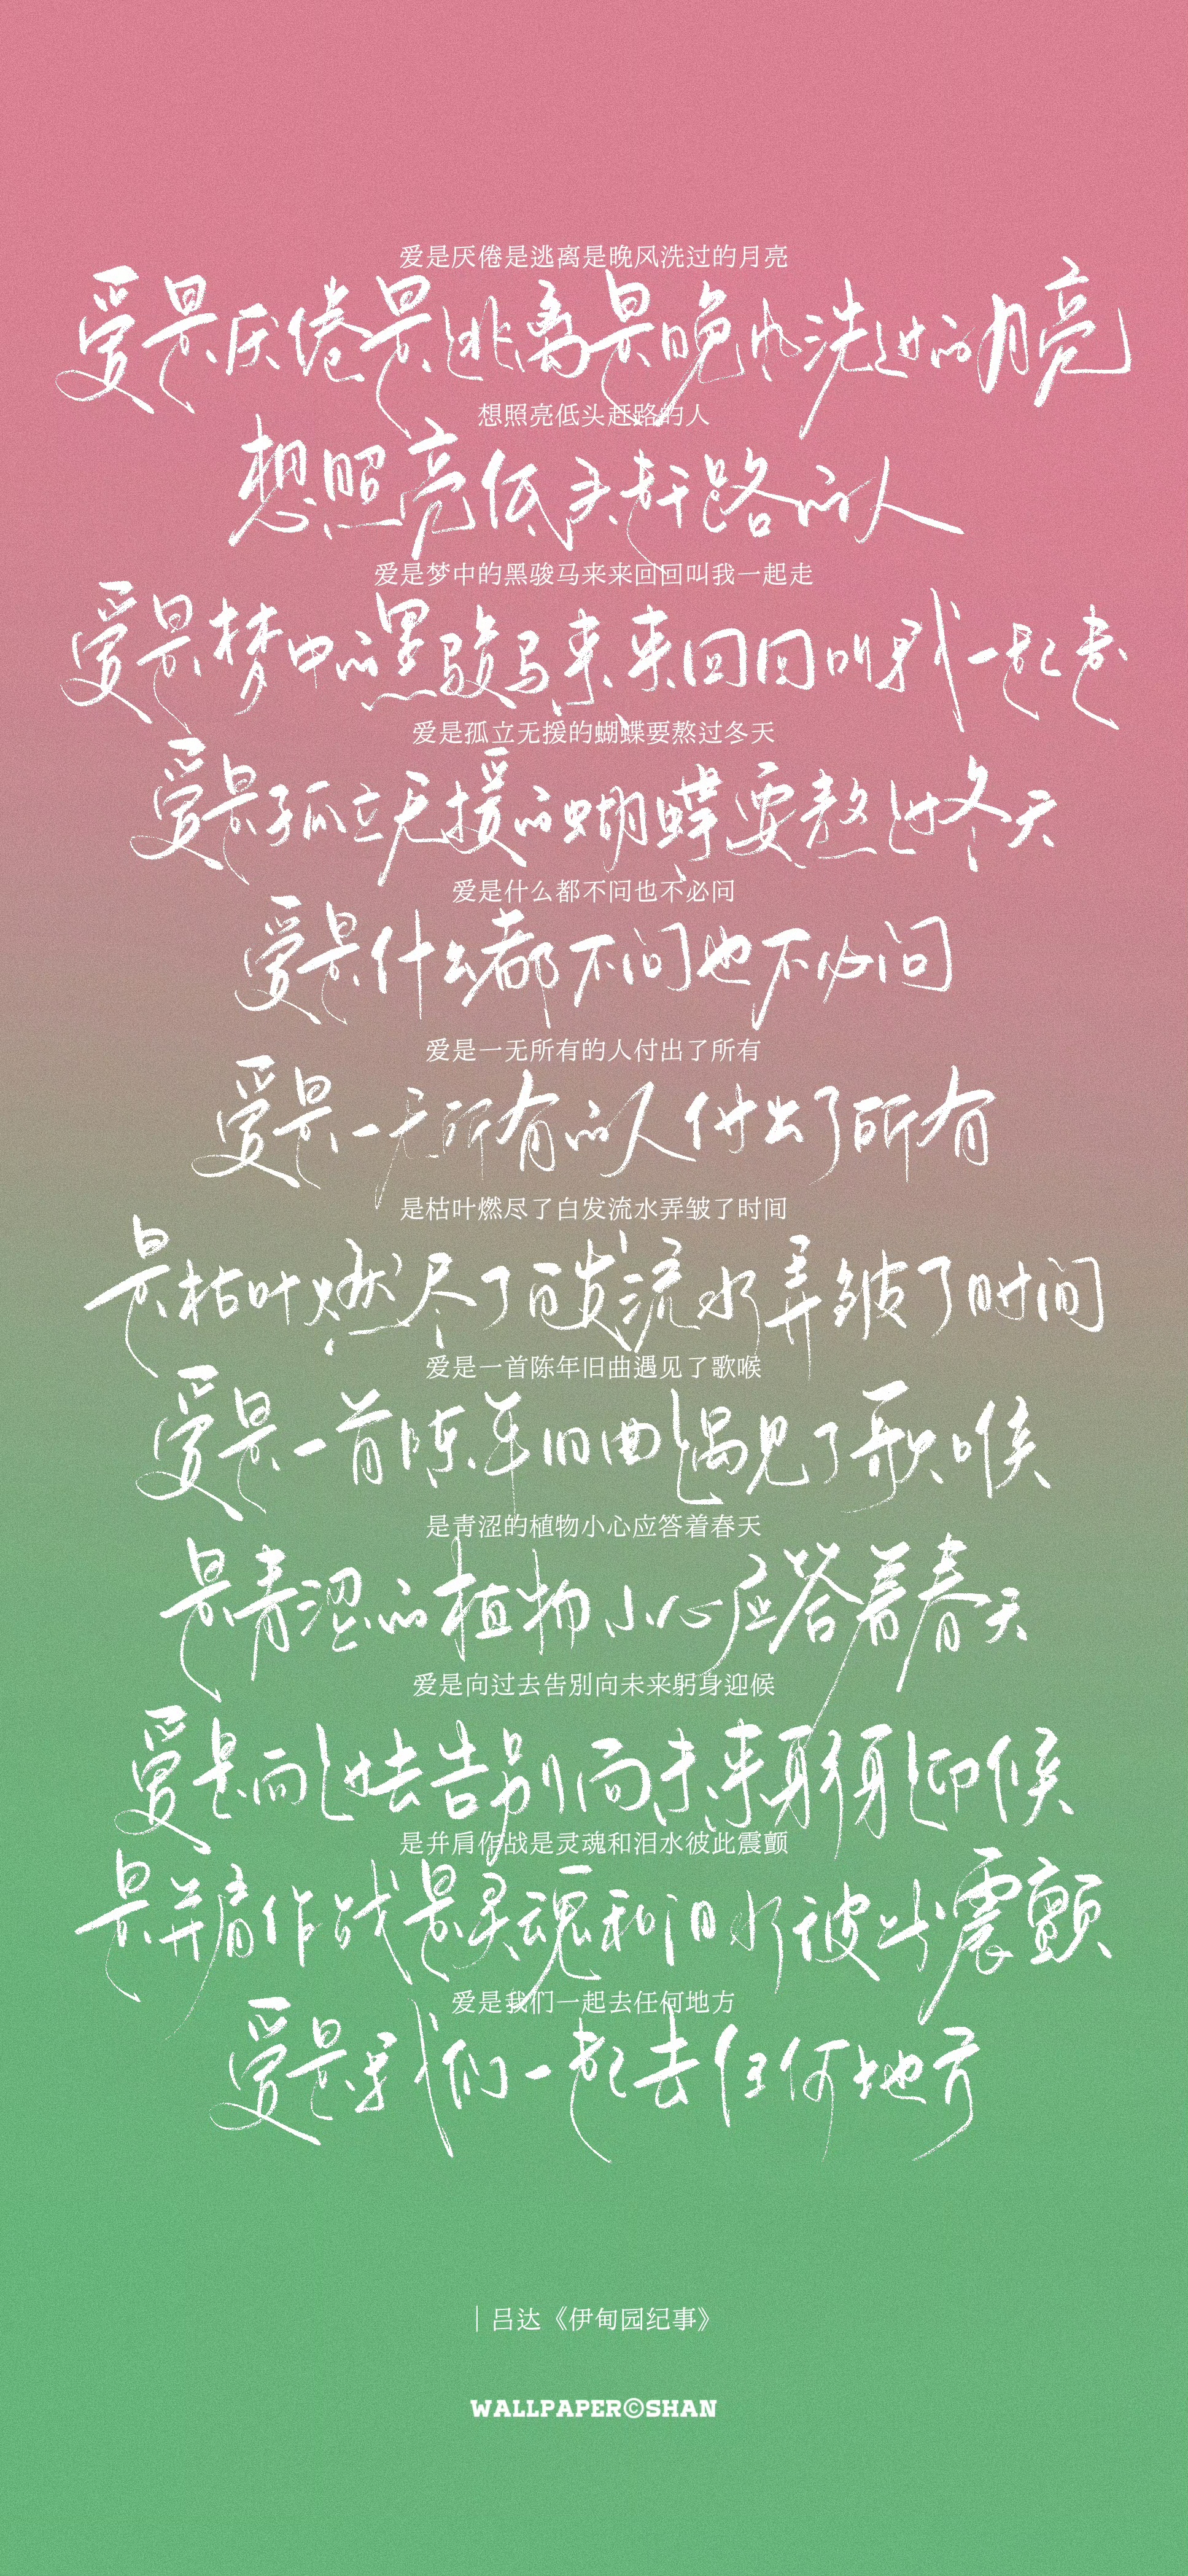 爱是厌倦是逃离是晚风洗过的月亮
爱是厌倦是逃离是晚风洗过的月亮
想照亮低头赶路的人
想照亮低头赶路的人
爱是梦中的黑骏马来来回回叫我一起走
爱是梦中的黑骏马来来回回叫我一起走
爱是孤立无援的蝴蝶要熬过冬天
爱是孤立无援的蝴蝶要熬过冬天
爱是什么都不问也不必问
爱是什么都不问也不必问
爱是一无所有的人付出了所有
爱是一无所有的人付出了所有
是枯叶燃尽了白发流水弄皱了时间
是枯叶燃尽了白发流水弄皱了时间
爱是一首陈年旧曲遇见了歌喉
爱是一首陈年旧曲遇见了歌喉
是青涩的植物小心应答着春天
是青涩的植物小心应答着春天
爱是向过去告别向未来躬身迎候
爱是向过去告别向未来躬身迎候
是并肩作战是灵魂和泪水彼此震颤
是并肩作战是灵魂和泪水彼此震颤
爱是我们一起去任何地方
爱是我们一起去任何地方
｜吕达《伊甸园纪事》
WALLPAPER©SHAN